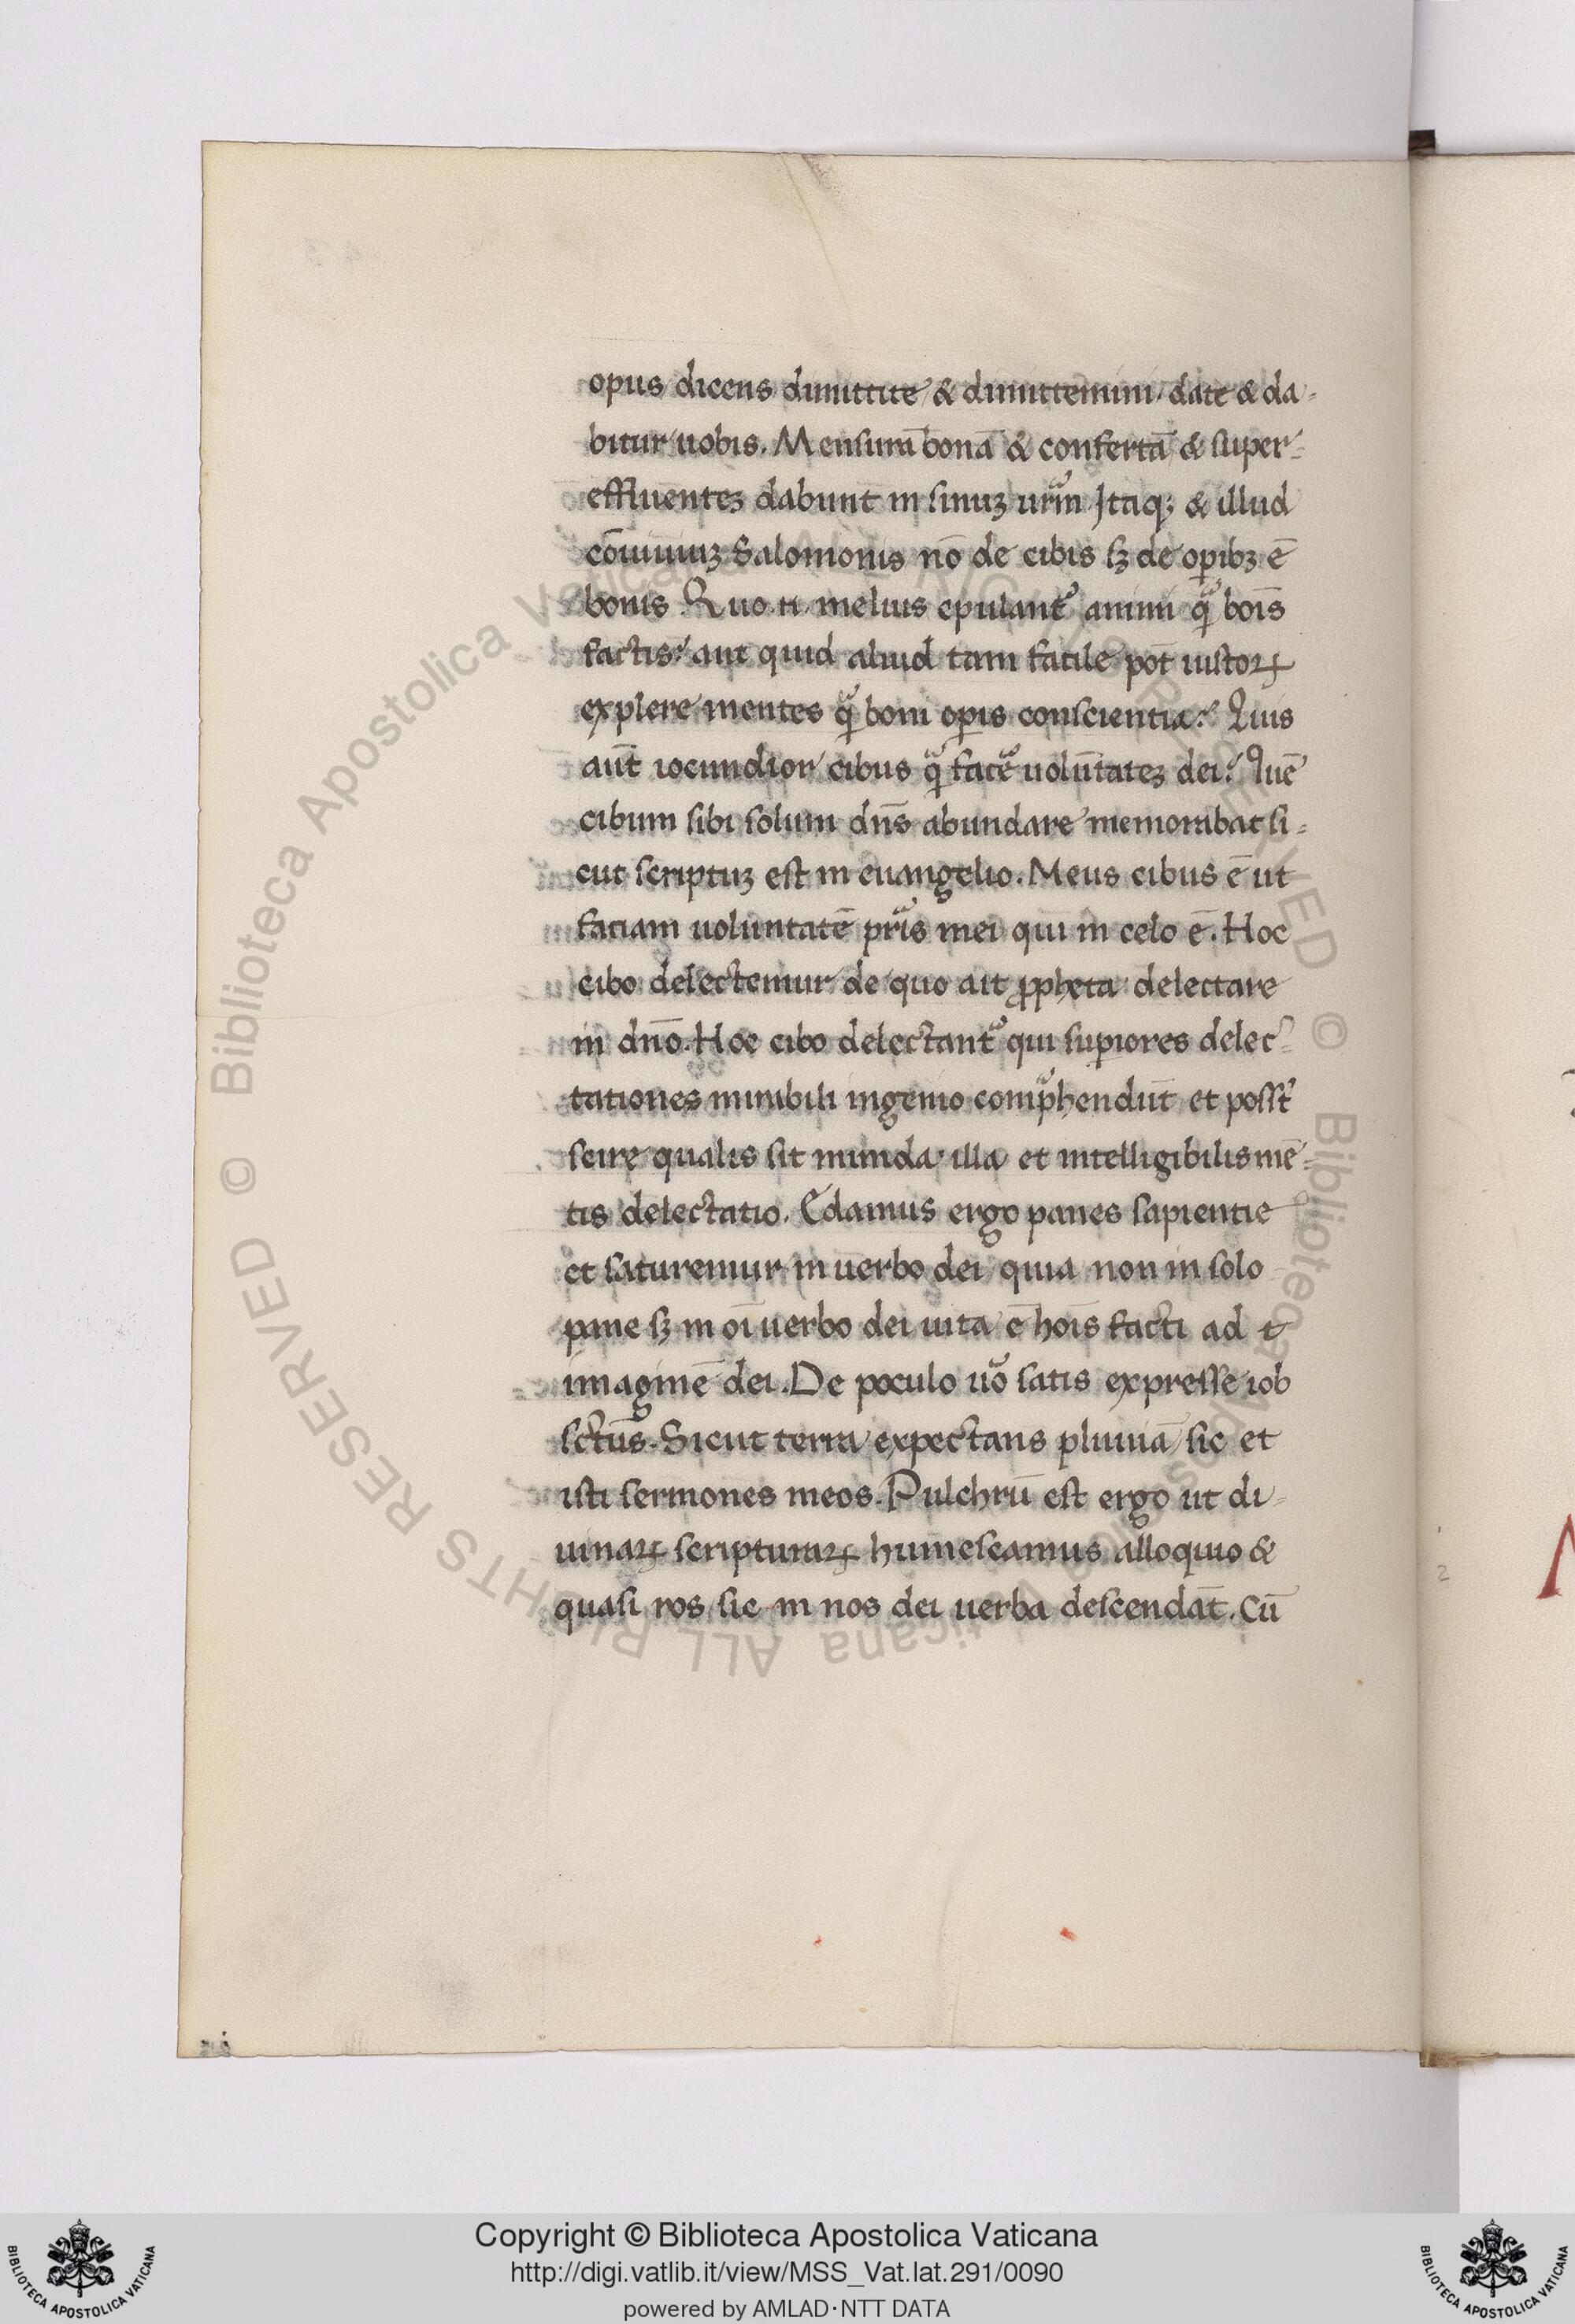 opus dicens dimittite & dimittemini, date & da-
bitur uobis. Mensurā bonā & confertā & super-
effluenteʒ dabunt in sinuʒ ur̃m Itaqꝫ & illud
cōuiuiuʒ Salomonis nō de cibis sꝫ de oꝑibꝫ ē
bonis Quo .n. melius epulant᷑ animi q̃ boīs
factis? aut quid aliud tam facile pōt iustoꝝ
explere mentes q̃ boni oꝑis conscientia? Quis
aūt iocundior cibus q̃ facẽ uolūtateʒ dei? Quē
cibum sibi solum dn̄s abundare memorabat si-
cut scriptuʒ est in euangelio. Meus cibus ē ut
faciam uoluntatē pr̃is mei qui in celo ē. Hoc
cibo delectemur de quo ait ꝓpheta delectare
in dn̄o. Hoc cibo delectant᷑ qui suꝑiores delec-
tationes mirabili ingenio comp̃hendūt et posst̃
scire qualis sit munda illa et intelligibilis mē-
tis delectatio. Edamus ergo panes sapientie
et saturemur in uerbo dei quia non in solo
pane sꝫ in oī uerbo dei uita ē hoīs facti ad
imaginē dei. De poculo uõ satis expresse iob
sctūs. Sicut terra expectans pluuiā sic et
isti sermones meos. Pulchrū est ergo ut di-
uinaꝝ scripturaꝝ humescamus alloquio &
quasi ros sic in nos dei uerba descendāt. Cū
Copyright © Biblioteca Apostolica Vaticana
http://digi.vatlib.it/view/MSS_Vat.lat.291/0090
powered by AMLAD·NTT DATA
BIBLIOTECA APOSTOLICA VATICANA
BIBLIOTECA APOSTOLICA VATICANA